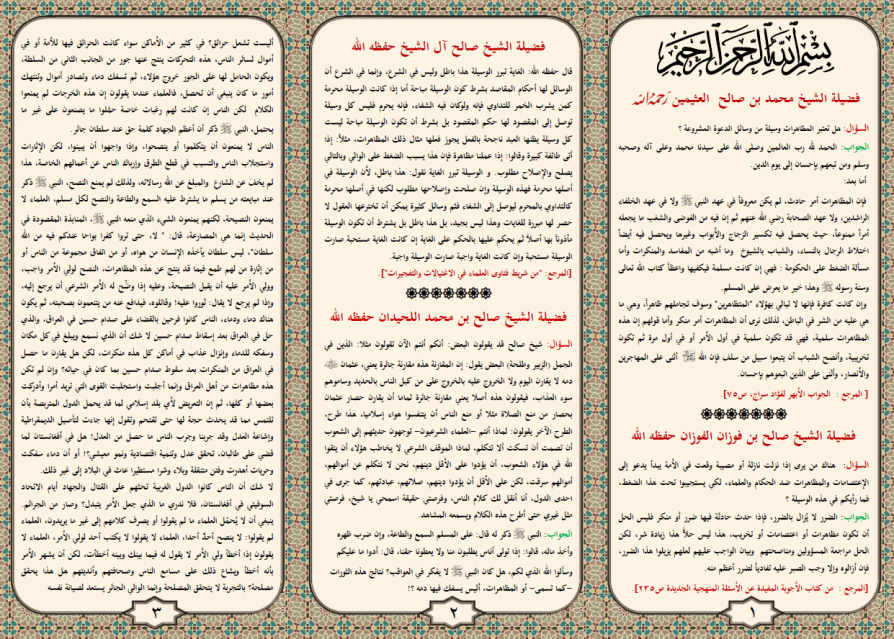 بسم الله الرحمن الرحيم
فضيلة الشيخ محمد بن صالح العثيمين رحمه الله
السؤال: هل تعتبر المظاهرات وسيلة من وسائل الدعوة المشروعة ؟
الجواب: الحمد لله رب العالمين وصلى الله على سيدنا محمد وعلى آله وصحبه
وسلم ومن تبعهم بإحسان إلى يوم الدين.
أما بعد:
فإن المظاهرات أمر حادث، لم يكن معروفاً في عهد النبي ﷺ ولا في عهد الخلفاء
الراشدين، ولا عهد الصحابة رضي الله عنهم ثم إن فيه من الفوضى والشغب ما يجعله
أمراً ممنوعاً، حيث يحصل فيه تكسير الزجاج والأبواب وغيرها ويحصل فيه أيضاً
اختلاط الرجال بالنساء، والشباب بالشيوخ وما أشبه من المفاسد والمنكرات وأما
مسألة الضغط على الحكومة : فهي إن كانت مسلمة فيكفيها واعظاً كتاب الله تعالى
وسنة رسوله ﷺ وهذا خير ما يعرض على المسلم.
وإن كانت كافرة فإنها لا تبالي بهؤلاء "المتظاهرين" وسوف تجاملهم ظاهراً، وهي ما
هي عليه من الشر في الباطن، لذلك نرى أن المظاهرات أمر منكر وأما قولهم إن هذه
المظاهرات سلمية، فهي قد تكون سلمية في أول الأمر أو في أول مرة ثم تكون
تخريبية، وأنصح الشباب أن يتبعوا سبيل من سلف فإن الله ﷻ أثنى على المهاجرين
والأنصار، وأثنى على الذين اتبعوهم بإحسان.
[ المرجع : الجواب الأبهر لفؤاد سراج، ص٧٥].
فضيلة الشيخ صالح بن فوزان الفوزان حفظه الله
السؤال: هناك من يرى إذا نزلت نازلة أو مصيبة وقعت في الأمة يبدأ يدعو إلى
الإعتصامات والمظاهرات ضد الحكام والعلماء، لكي يستجيبوا تحت هذا الضغط،
فما رأيكم في هذه الوسيلة ؟
الجواب: الضرر لا يُزال بالضرر، فإذا حدث حادثة فيها ضرر أو منكر فليس الحل
أن تكون مظاهرات أو اعتصامات أو تخريب، هذا ليس حلاً هذا زيادة شر، لكن
الحل مراجعة المسؤولين ومناصحتهم وبيان الواجب عليهم لعلهم يزيلوا هذا الضرر،
فإن أزالوه وإلا وجب الصبر عليه تفادياً لضرر أعظم منه.
[المرجع : من كتاب الأجوبة المفيدة عن الأسئلة المنهجية الجديدة ص٢٣٥].
١
فضيلة الشيخ صالح آل الشيخ حفظه الله
قال حفظه الله: الغاية تبرر الوسيلة هذا باطل وليس في الشرع، وإنما في الشرع أن
الوسائل لها أحكام المقاصد بشرط كون الوسيلة مباحة أما إذا كانت الوسيلة محرمة
كمن يشرب الخمر للتداوي فإنه ولوكان فيه الشفاء، فإنه يحرم فليس كل وسيلة
توصل إلى المقصود لها حكم المقصود بل بشرط أن تكون الوسيلة مباحة ليست
كل وسيلة يظنها العبد ناجحة بالفعل يجوز فعلها مثال ذلك المظاهرات، مثلاً: إذا
أتى طائفة كبيرة وقالوا: إذا عملنا مظاهرة فإن هذا يسبب الضغط على الوالي وبالتالي
يصلح والإصلاح مطلوب. و الوسيلة تبرر الغاية نقول: هذا باطل، لأن الوسيلة في
أصلها محرمة فهذه الوسيلة وإن صلحت وإصلاحها مطلوب لكنها في أصلها محرمة
كالتداوي بالمحرم ليوصل إلى الشفاء فثم وسائل كثيرة يمكن أن تخترعها العقول لا
حصر لها مبررة للغايات وهذا ليس بجيد، بل هذا باطل بل يشترط أن تكون الوسيلة
مأذوناً بها أصلاً ثم يحكم عليها بالحكم على الغاية إن كانت الغاية مستحبة صارت
الوسيلة مستحبة وإن كانت الغاية واجبة صارت الوسيلة واجبة.
[المرجع: "من شريط فتاوى العلماء في الاغتيالات والتفجيرات"].
فضيلة الشيخ صالح بن محمد اللحيدان حفظه الله
السؤال: شيخ صالح قد يقولون البعض: أنكم أنتم الآن تقولون مثلا: الذين في
الجمل (الزبير وطلحة) البعض يقول: إن المقارنة هذه مقارنة جائرة يعني، عثمان
دمه لا يقارن اليوم ولا الخروج عليه بالخروج على من كبل الناس بالحديد وساموهم
سوء العذاب، فيقولون هذه أصلا يعني مقارنة جائرة تماما أن يقارن حصار عثمان
بحصار من منع الصلاة مثلا أو منع الناس أن يتنفسوا هواء إسلاميا، هذا طرح،
الطرح الآخر يقولون: لماذا أنتم –العلماء الشرعيون– توجهون حديثهم إلى الشعوب
أن تصمت أن تسكت ألا تتكلم، لماذا الموقف الشرعي لا يخاطب هؤلاء أن يتقوا
الله في هؤلاء الشعوب، أن يؤدوا على الأقل دينهم، نحن لا نتكلم عن أموالهم،
أموالهم سرقت، لكن على الأقل أن يؤدوا دينهم، صلاتهم، عباداتهم، كما جرى في
احدى الدول، أنا أنقل لك كلام الناس، وفرصتي حقيقة اسمحي يا شيخ، فرصتي
مثل غيري حتى أطرح هذه الكلام ويسمعه المشاهد.
الجواب: النبي ﷺ ذكر له قال: على المسلم السمع والطاعة، وإن ضرب ظهره
وأخذ ماله، قالوا: إذا تولى أناس يطلبون منا ولا يعطونا حقنا، قال: أدوا ما عليكم
وسألوا الله الذي لكم، هل كان النبي ﷺ لا يفكر في العواقب؟ نتائج هذه الثورات
–كما تسمى– أو المظاهرات، أليس يسفك فيها دمه ؟!
٢
أليست تشعل حرائق؟ في كثير من الأماكن سواء كانت الحرائق فيها للأمة أو في
أموال لسائر الناس، هذه التحركات ينتج عنها جور من الجانب الثاني من السلطة،
ويكون الحامل لها على الجور خروج هؤلاء، ثم تسفك دماء وتصادر أموال وتنتهك
أمور ما كان ينبغي أن تحصل، فالعلماء عندما يقولون إن هذه الخرجات لم يمنعوا
الكلام لكن الناس إن كانت لهم رغبات خاصة حمّلوا ما يصنعون على غير ما
يحتمل، النبي ﷺ ذكر أن أعظم الجهاد كلمة حق عند سلطان جائر.
الناس لا يمنعون أن يتكلموا أو ينصحوا، وإذا واجهوا أن يبينوا، لكن الإثارات
واستجلاب الناس والتسبب في قطع الطرق وإرباك الناس عن أعمالهم الخاصة، هذا
لم يخفَ عن الشارع والمبلغ عن الله رسالاته، ولذلك لم يمنع النصح، النبي ﷺ ذكر
عند مبايعته من يسلم ما يشترط عليه السمع والطاعة والنصح لكل مسلم، العلماء لا
يمنعون النصيحة، لكنهم يمنعون الشيء الذي منعه النبي ﷺ، المنابذة المقصودة في
الحديث إنما هي المصارعة، قال: " لا، حتى تروا كفرا بواحا عندكم فيه من الله
سلطان"، ليس سلطان يأخذه الإنسان من هواه، أو من اتفاق مجموعة من الناس أو
من إثارة من لهم طمع فيما قد ينتج عن هذه المظاهرات، النصح لولي الأمر واجب،
وولي الأمر عليه أن يقبل النصيحة، وعليه إذا وضُّح له الأمر الشرعي أن يرجع إليه،
وإذا لم يرجع لا يقال: ثوروا عليه! وقاتلوه، فيدافع عنه من يتنعمون بصحبته، ثم يكون
هناك دماء ودماء، الناس كانوا فرحين بالقضاء على صدام حسين في العراق، والذي
حل في العراق بعد إسقاط صدام حسين لا شك أن الذي نسمع ويبلغ في كل مكان
وسفكه للدماء وإنزال عذاب في أماكن كل هذه منكرات، لكن هل يقارن ما حصل
في العراق من المنكرات بعد سقوط صدام حسين بما كان في حياته؟ وإن لم تكن
هذه مظاهرات من أهل العراق وإنما أجلبت واستجلبت القوى التي تريد أمرا وأدركت
بعضها أو كلها، ثم إن التعريض لأي بلد إسلامي لما قد يحمل الدول المتربصة بأن
تلتمس مما قد يحدث حجة لها حتى تقتحم وتقول إنها جاءت لتأصيل الديمقراطية
وإشاعة العدل وقد جربنا وجرب الناس ما حصل من العدل؟ هل في أفغانستان لما
قضي على طالبان، تحقق عدل وتنمية اقتصادية ونمو معيشي؟! أو أن دماء سفكت
وحريات أهدرت وفتن متنقلة وبلاء وشرا مستطيرا عاث في البلاد إلى غير ذلك.
لا شك أن الناس كانوا الدول الغربية تحثهم على القتال والجهاد أيام الاتحاد
السوفيتي في أفغانستان، فلا ندري ما الذي جعل الأمر يتبدل؟ وصار من الجرائم.
ينبغي أن لا يُحمَّل العلماء ما لم يقولوا أو يصرف كلامهم إلى غير ما يريدون، العلماء
لم يقولوا: لا ينصح أحدٌ أحدا، العلماء لا يقولوا لا يكتب أحد لولي الأمر، العلماء لا
يقولون إذا أخطأ ولي الأمر لا يقول له فيما بينك وبينه أخطأت، لكن أن يشهر الأمر
بأنه أخطأ ويشاع ذلك على مسامع الناس وصحافتهم وأنديتهم هل هذا يحقق
مصلحة؟ بالتجربة لا يتحقق المصلحة وإنما الوالي الجائر يستعد لصيانة نفسه
٣